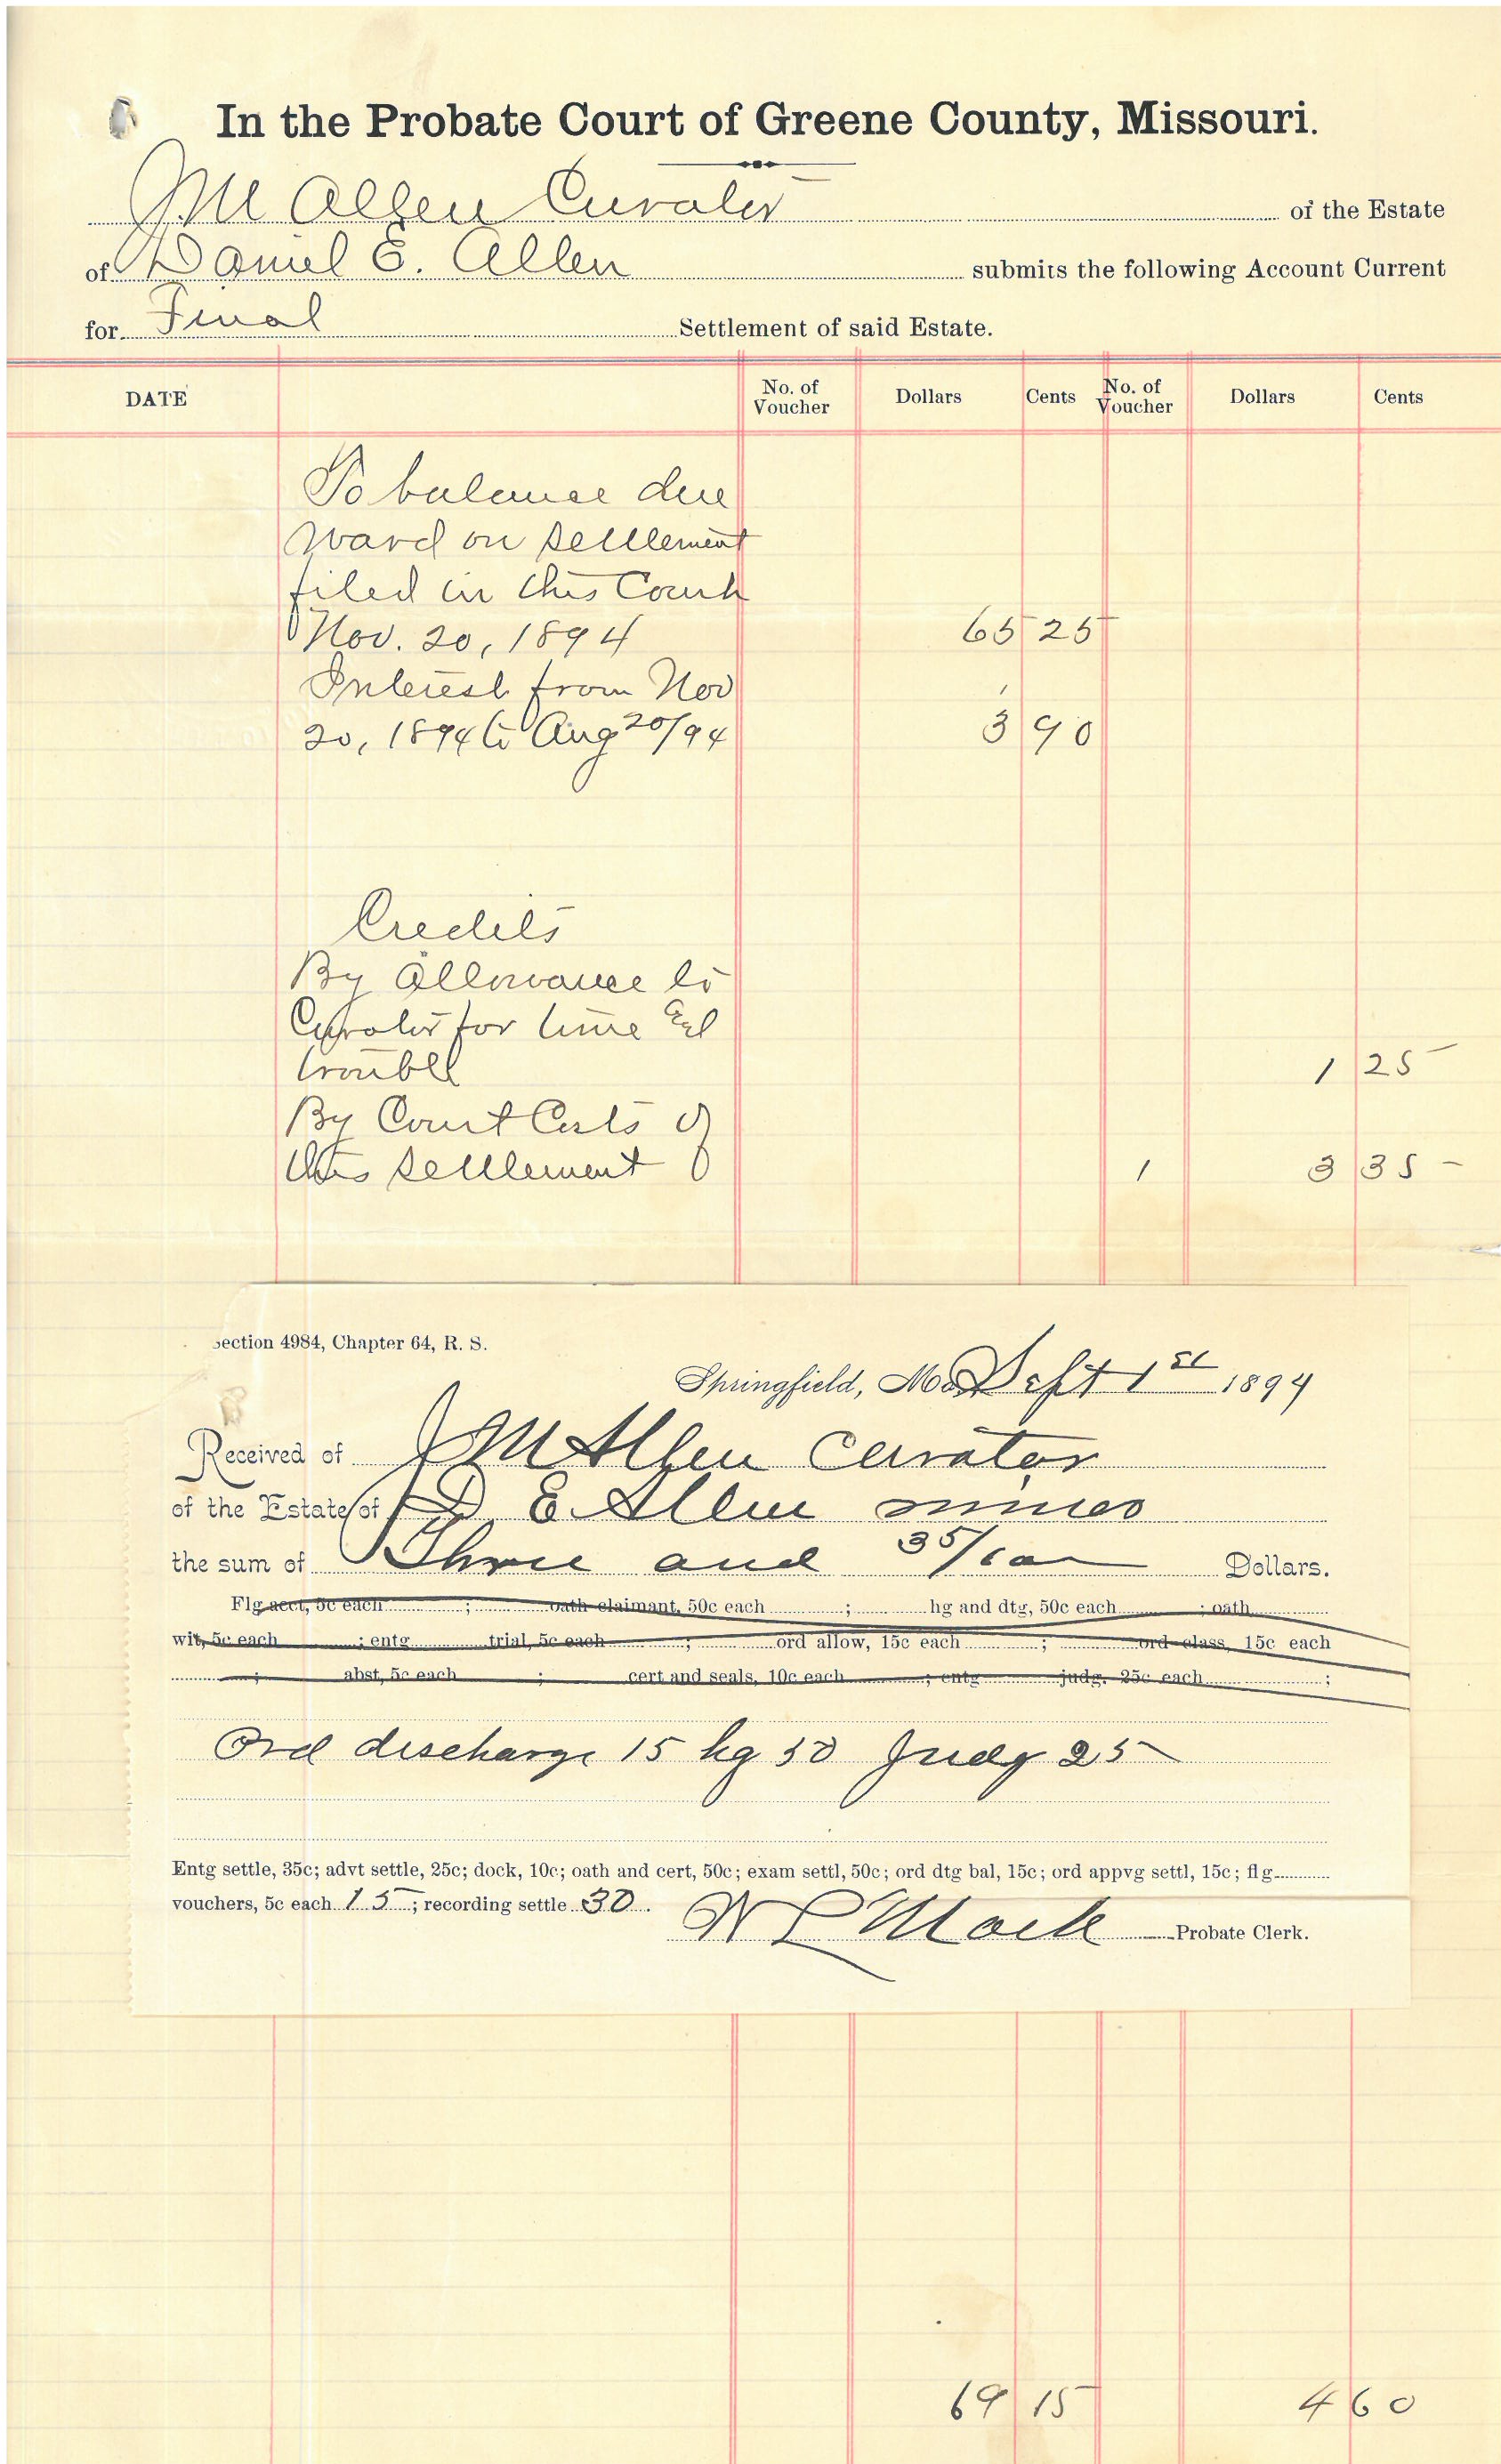 In the Probate Court of Greene County, Missouri.
J M Allen Curator of the Estate
of Daniel E. Allen submits the following Account Current
for Final Settlement of said Estate.
DATE No. of Voucher Dollars Cents No. of Voucher Dollars Cents
To balance due
Ward on settlement
filed in this Court
Nov. 20, 1894 65 25
Interest from Nov
20, 1894 to Aug 20/94 3 90
Credits
By Allowance to
Curator for time and
trouble 1 25
By Court Costs of
this settlement 1 3 35
Section 4984, Chapter 64, R. S.
Springfield, Mo. Sept 1st 1894
Received of J M Allen Curator
of the Estate of D E Allen minor
the sum of Three and 35/100 Dollars.
Flg acct, 5c each ; oath claimant, 50c each ; hg and dtg, 50c each ; oath
wit, 5c each ; entg trial, 5c each ; ord allow, 15c each ; ord class, 15c each
; abst, 5c each ; cert and seals, 10c each ; entg judg. 25c each ;
Ord discharge 15 hg 50 Judg 25
Entg settle, 35c; advt settle, 25c; dock, 10c; oath and cert, 50c; exam settl, 50c; ord dtg bal, 15c; ord appvg settl, 15c; flg
vouchers, 5c each 15; recording settle 30.
Mack Probate Clerk.
69 15 4 60